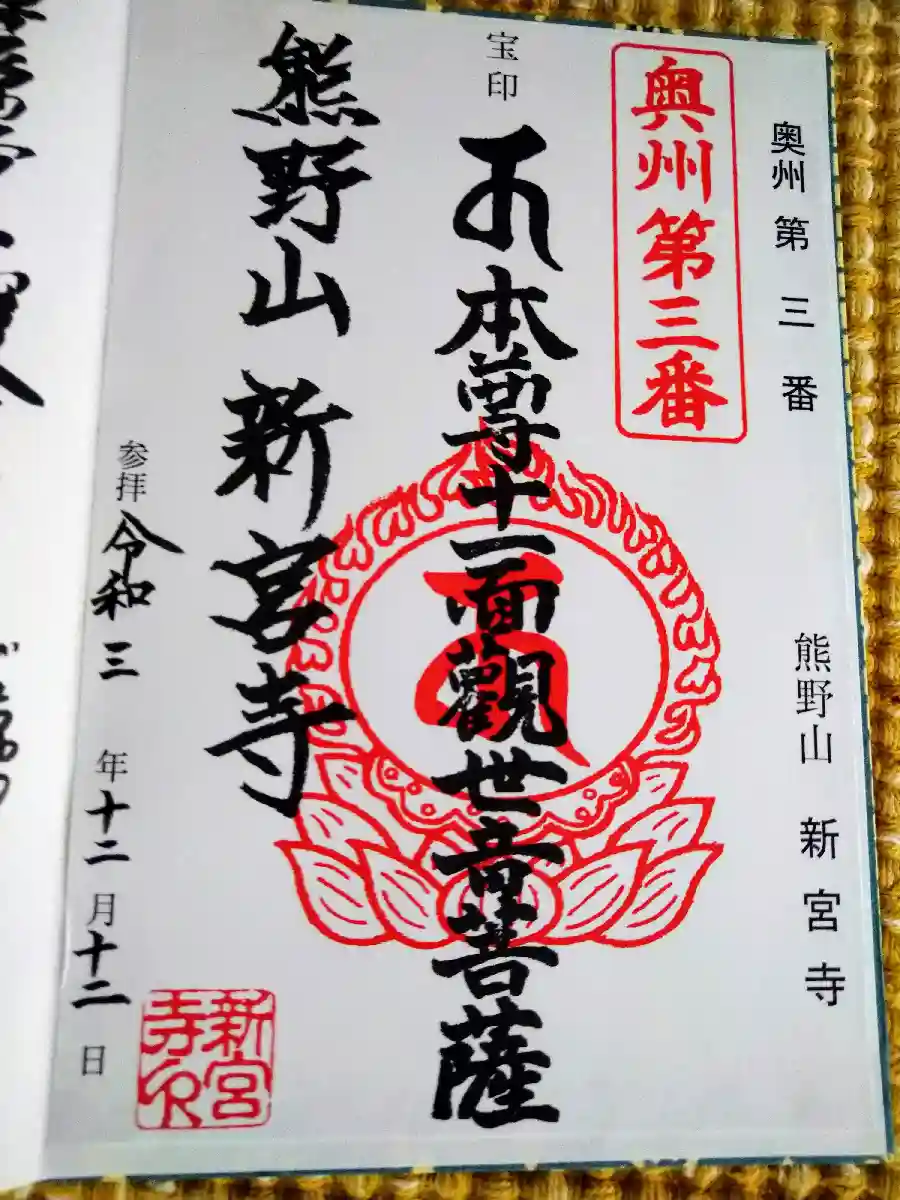 奥州第三番
熊野山 新宮寺
奥州第三番
宝印
本尊十一面觀世音菩薩
熊野山 新宮寺
参拝 令和三年十二月十二日
新宮寺印